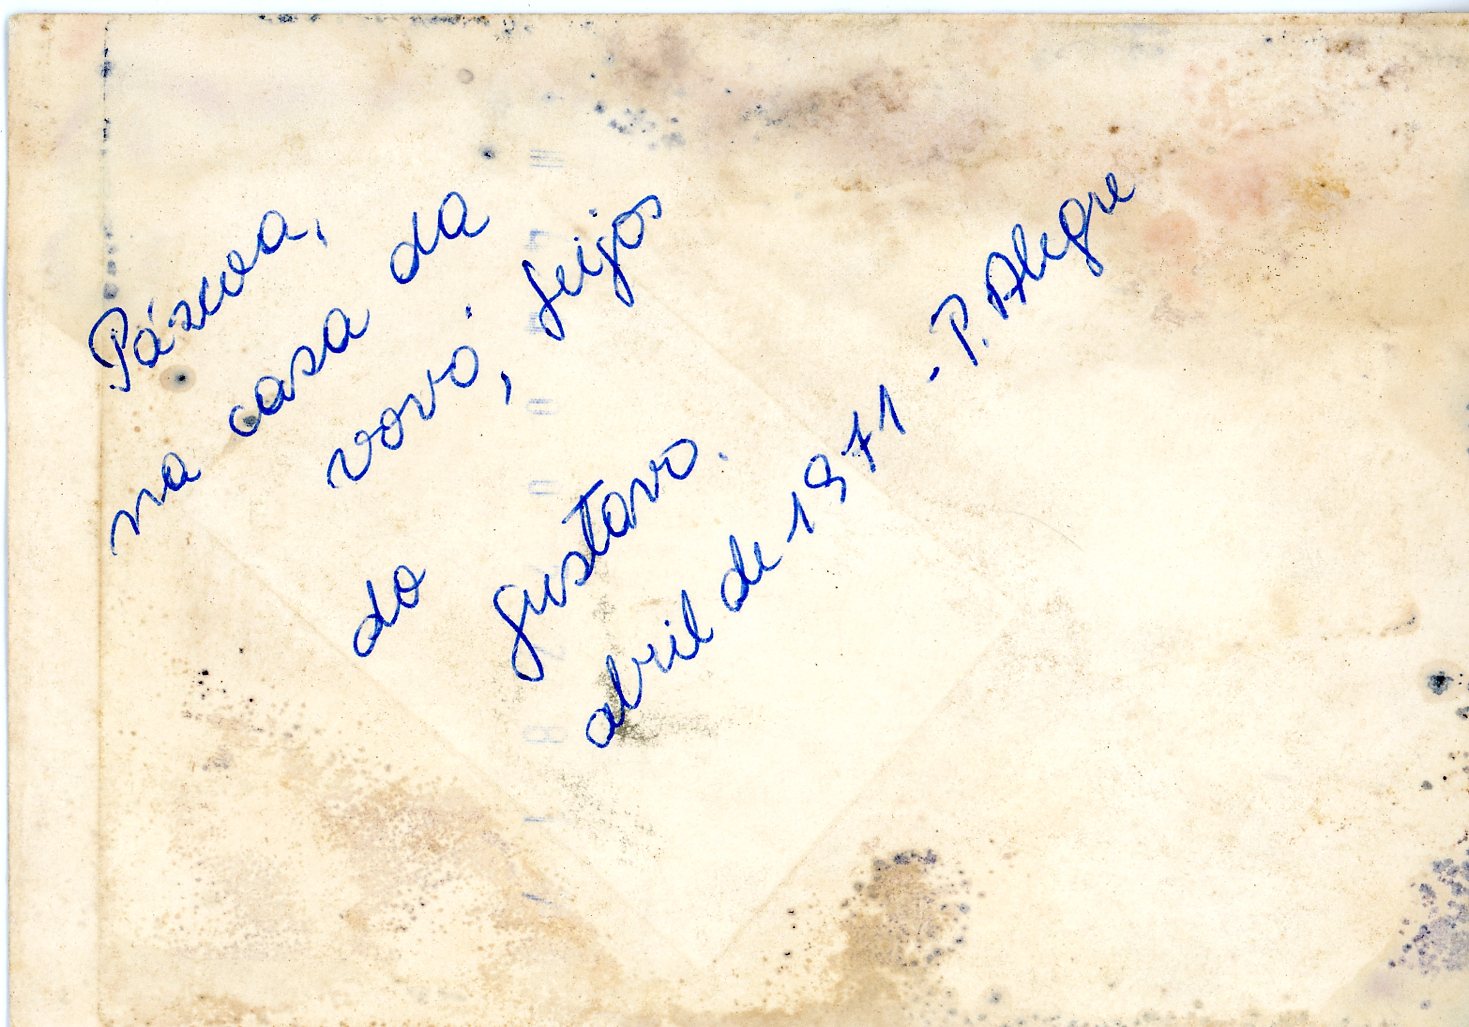 Páscoa,
na casa da
vovó, feijos
do gustavo.
abril de 1971 - P. Alegre